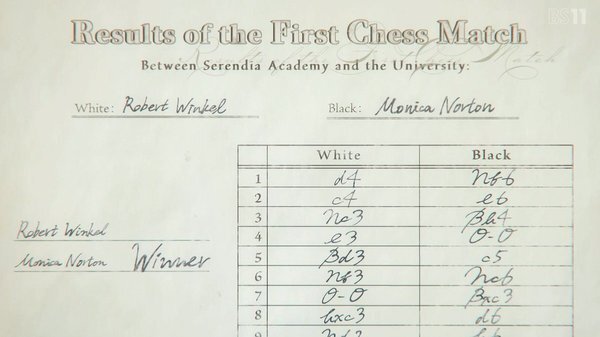 BS11
Results of the First Chess Match
Between Serendia Academy and the University:
White: Robert Winkel Black: Monica Norton
White Black
1 d4 Nf6
2 c4 e6
3 Nc3 Bb4
4 e3 O-O
5 Bd3 c5
6 Nf3 Nc6
7 O-O Bxc3
8 bxc3 d6
9
Robert Winkel
Monica Norton Winner